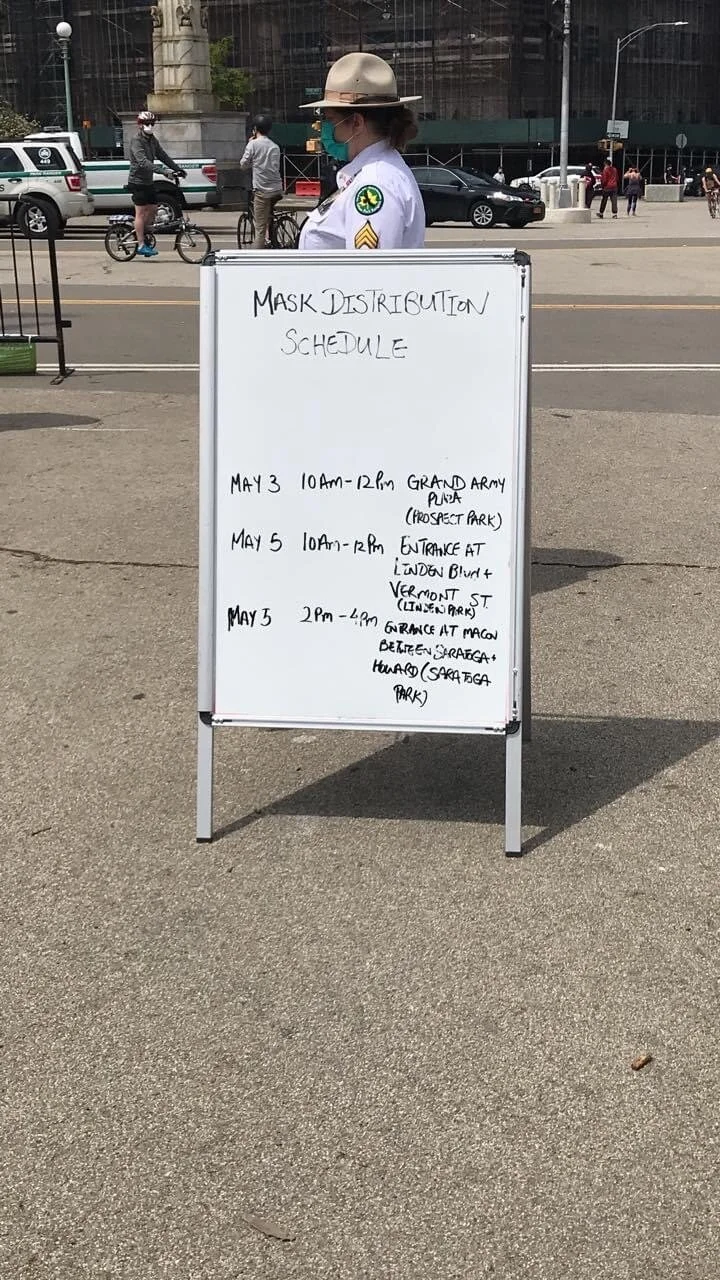 MASK DISTRIBUTION
SCHEDULE
MAY 3 10AM-12PM GRAND ARMY
PLAZA
(PROSPECT PARK)
MAY 5 10AM-12PM ENTRANCE AT
LINDEN BLVD +
VERMONT ST.
(LINDEN PARK)
MAY 5 2PM-4PM ENTRANCE AT MACON
BETWEEN SARATOGA +
HOWARD (SARATOGA
PARK)
449
RANGER